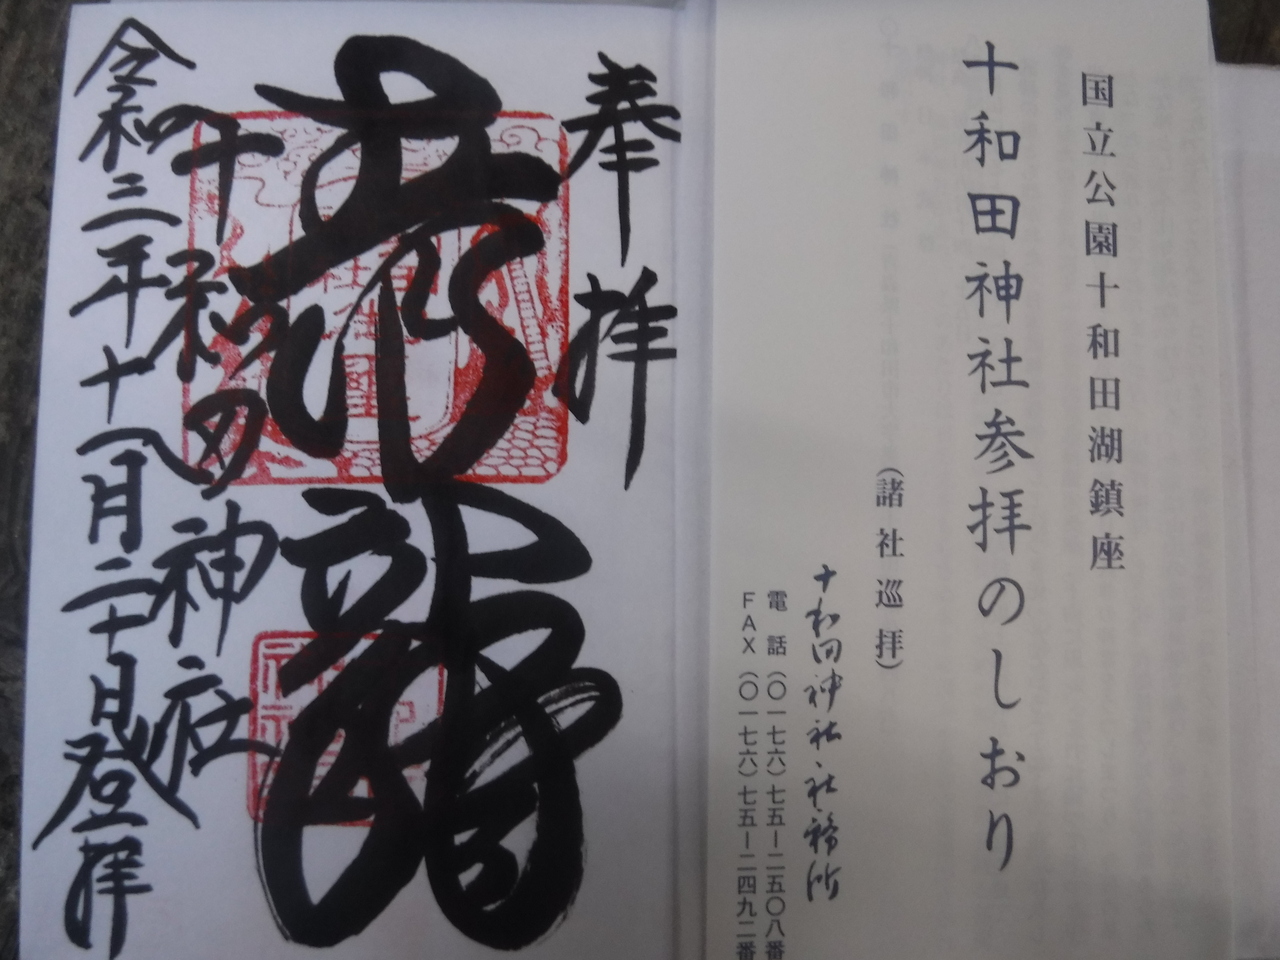 国立公園十和田湖鎮座
十和田神社参拝のしおり
（諸社巡拝）
十和田神社社務所
電話（〇一七六）七五ー二五〇八番
FAX（〇一七六）七五ー二四九二番
奉拝
龍
十和田神社
令和三年十一月二十日登拝